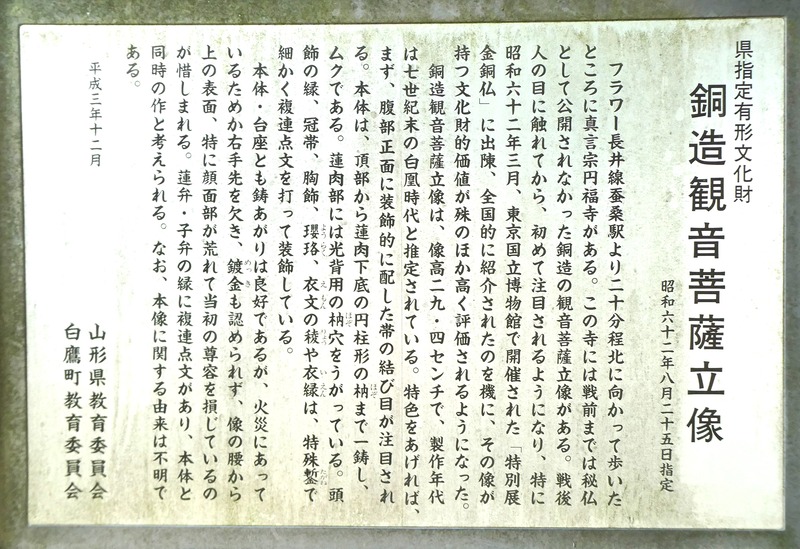 県指定有形文化財
銅造観音菩薩立像
昭和六十二年八月二十五日指定
フラワー長井線蚕桑駅より二十分程北に向かって歩いた
ところに真言宗円福寺がある。この寺には戦前までは秘仏
として公開されなかった銅造の観音菩薩立像がある。戦後
人の目に触れてから、初めて注目されるようになり、特に
昭和六十二年三月、東京国立博物館で開催された「特別展
金銅仏」に出陳、全国的に紹介されたのを機に、その像が
持つ文化財的価値が殊のほか高く評価されるようになった。
銅造観音菩薩立像は、像高二九・四センチで、製作年代
は七世紀末の白凰時代と推定されている。特色をあげれば、
まず、腹部正面に装飾的に配した帯の結び目が注目され
る。本体は、頂部から蓮肉下底の円柱形の枘まで一鋳し、
ムクである。蓮肉部には光背用の枘穴をうがっている。頭
飾の縁、冠帯、胸飾、瓔珞、衣文の稜や衣縁は、特殊鏨で
細かく複連点文を打って装飾している。
本体・台座とも鋳あがりは良好であるが、火災にあって
いるためか右手先を欠き、鍍金も認められず、像の腰から
上の表面、特に顔面部が荒れて当初の尊容を損じているの
が惜しまれる。蓮弁・子弁の縁に複連点文があり、本体と
同時の作と考えられる。なお、本像に関する由来は不明で
ある。
平成三年十二月
山形県教育委員会
白鷹町教育委員会